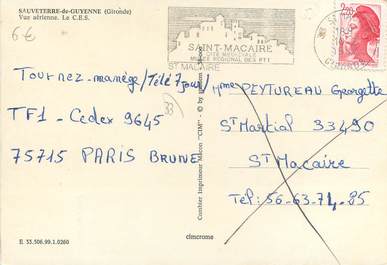 SAUVETERRE-de-GUYENNE (Gironde)
Vue aérienne. Le C.E.S.
6€
SAINT-MACAIRE
CITÉ MÉDIÉVALE
MUSÉE RÉGIONAL DES PTT
ST MACAIRE
2,20
Tournez-manège/Télé 7 jours/
33
TF1 - Cedex 9645
75715 PARIS BRUNE
Combier Imprimeur Mâcon "CIM"
Mme PEYTUREAU Georgette
St Martial 33490
St Macaire
Tel: 56-63-71-85
E 33.506.99.1.0260
cimcrome